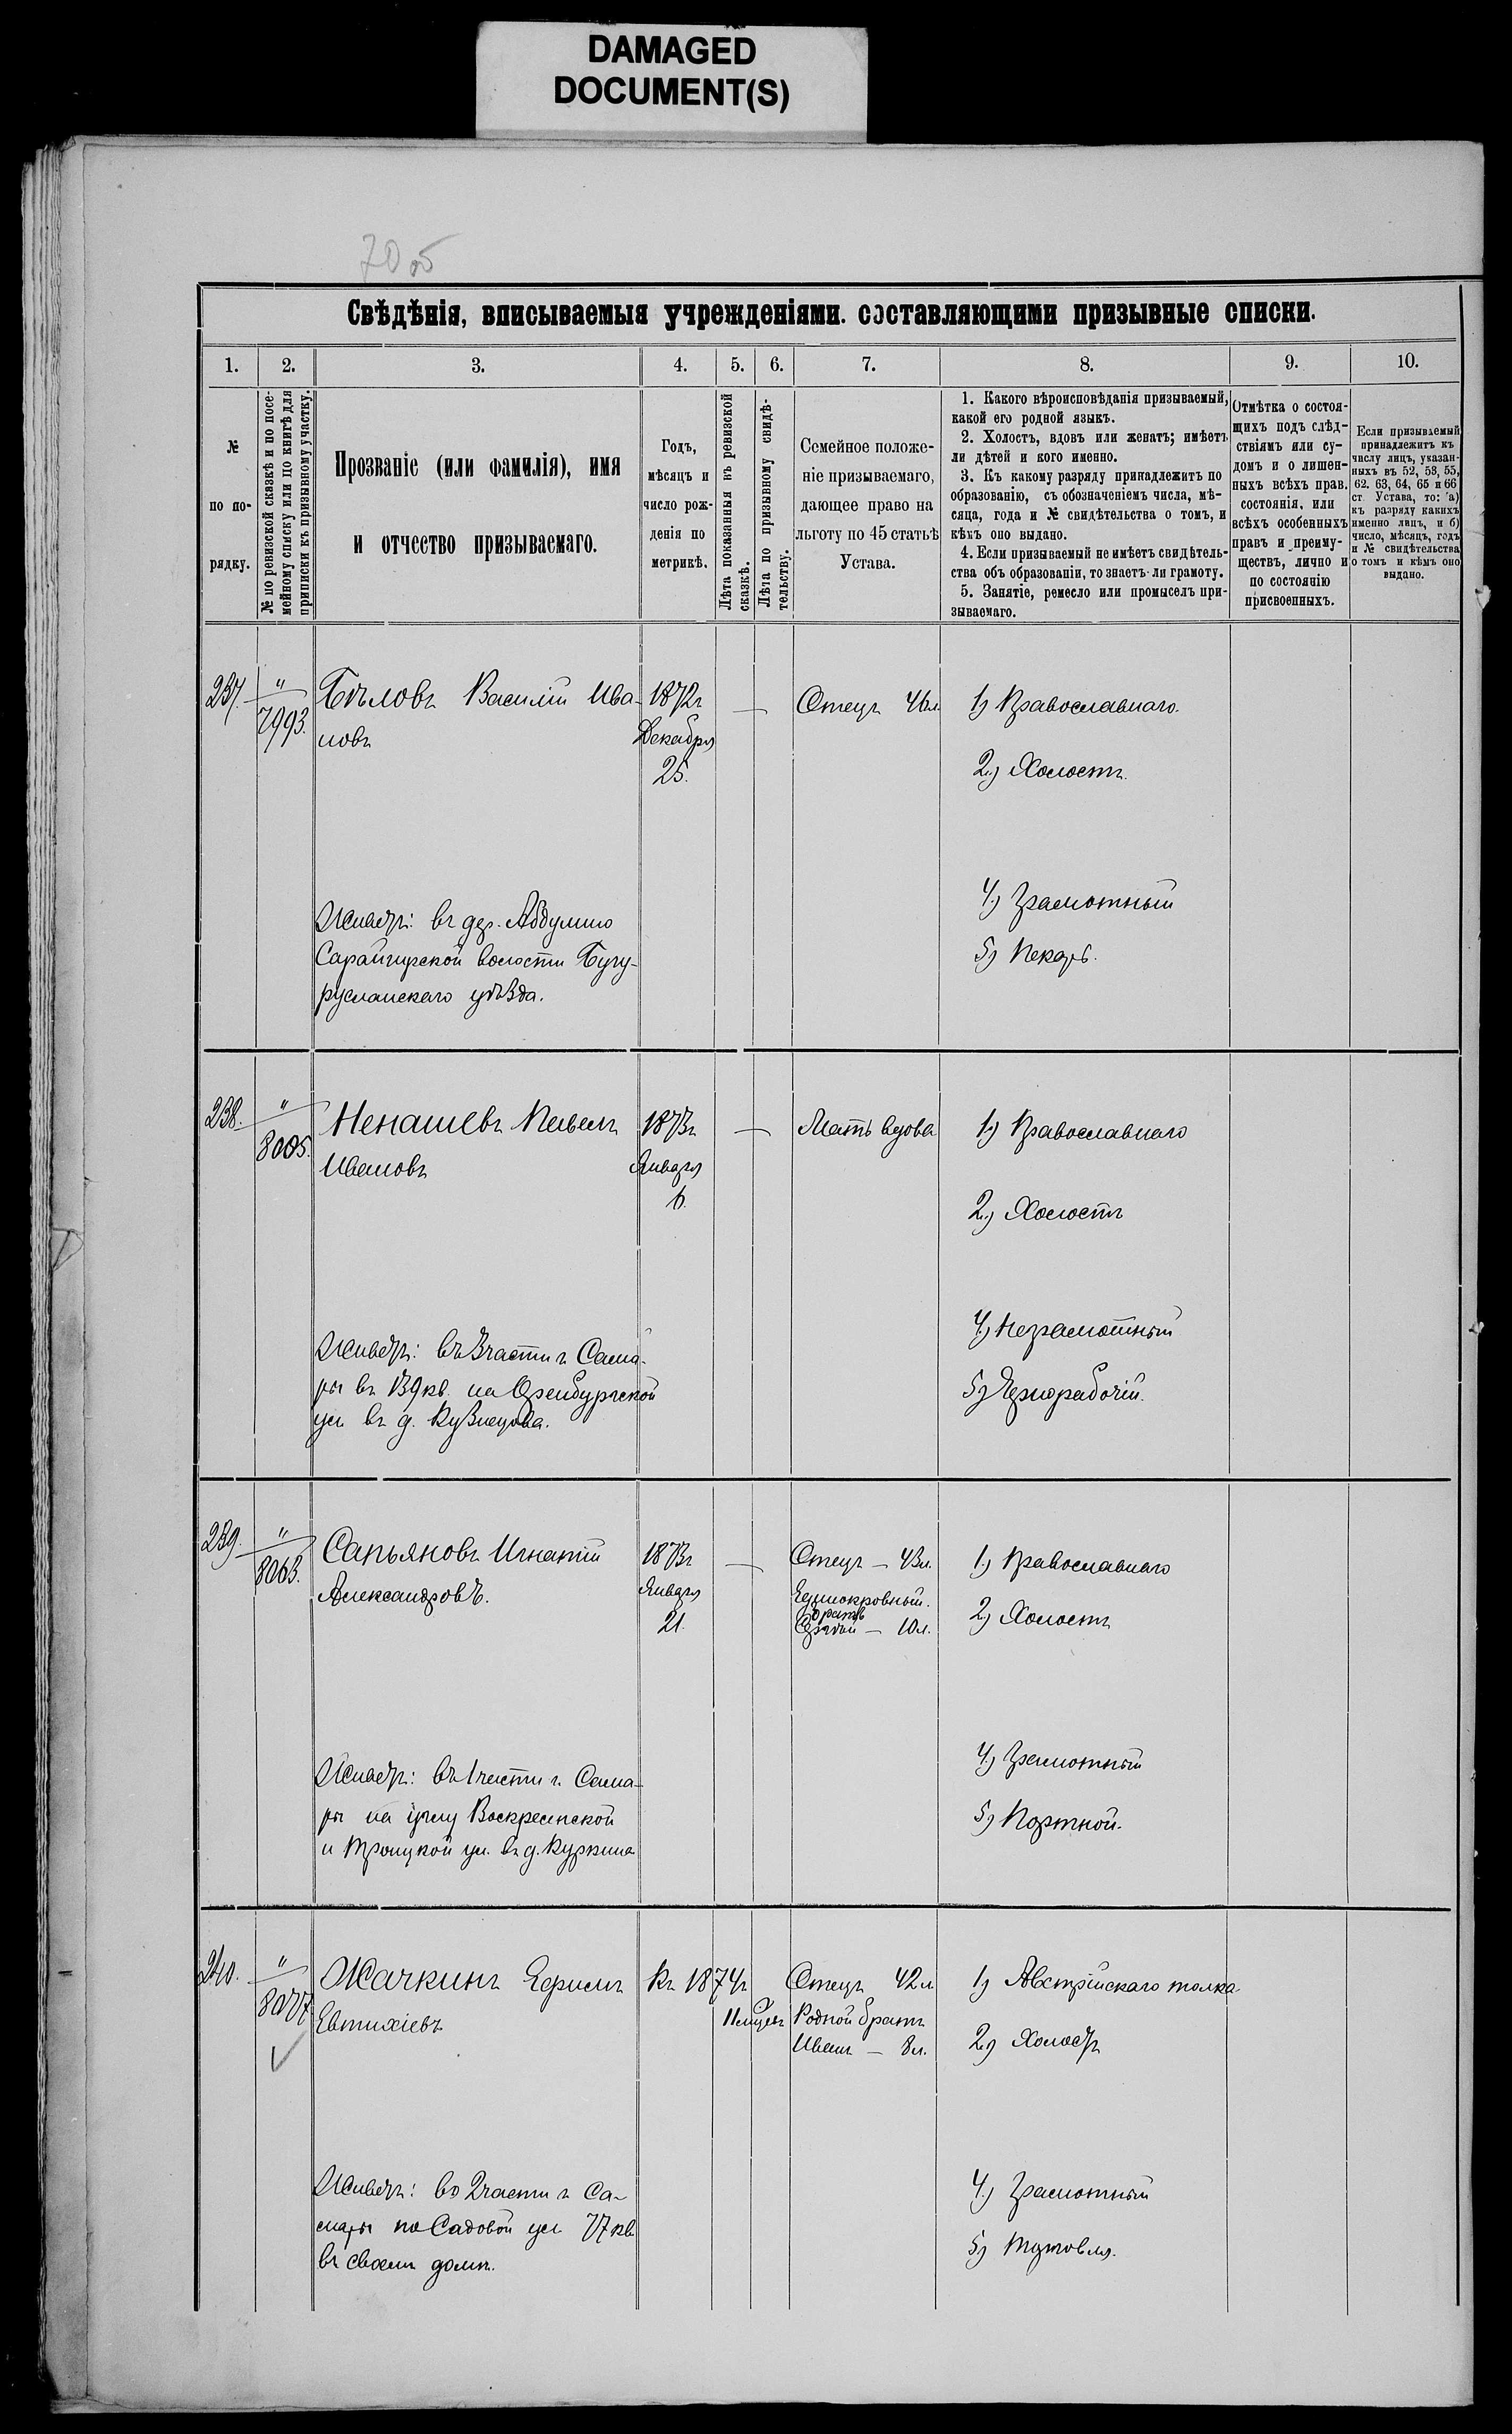 DAMAGED
DOCUMENT(S)
70 об
Свѣдѣнія, вписываемыя учрежденіями. составляющими призывные списки.
1. 2. 3. 4. 5. 6. 7. 8. 9. 10.
№
по по-
рядку.
№ по ревизской сказкѣ и по посе-
мейному списку или по книгѣ для
приписки къ призывному участку.
Прозваніе (или фамилія), имя
и отчество призываемаго.
Годъ,
мѣсяцъ и
число рож-
денія по
метрикѣ.
Лѣта показанныя въ ревизской
сказкѣ.
Лѣта по призывному свидѣ-
тельству.
Семейное положе-
ніе призываемаго,
дающее право на
льготу по 45 статьѣ
Устава.
1. Какого вѣроисповѣданія призываемый,
какой его родной языкъ.
2. Холостъ, вдовъ или женатъ; имѣетъ
ли дѣтей и кого именно.
3. Къ какому разряду принадлежитъ по
образованію, съ обозначеніемъ числа, мѣ-
сяца, года и № свидѣтельства о томъ, и
кѣмъ оно выдано.
4. Если призываемый не имѣетъ свидѣтель-
ства объ образованіи, то знаетъ-ли грамоту.
5. Занятіе, ремесло или промыселъ при-
зываемаго.
Отмѣтка о состоя-
щихъ подъ слѣд-
ствіямъ или су-
домъ и о лишен-
ныхъ всѣхъ прав.
состоянія, или
всѣхъ особенныхъ
правъ и преиму-
ществъ, лично и
по состоянію
присвоенныхъ.
Если призываемый
принадлежитъ къ
числу лицъ, указан-
ныхъ въ 52, 53, 55,
62. 63, 64, 65 и 66
ст Устава, то: а)
къ разряду какихъ
именно лицъ, и б)
число, мѣсяцъ, годъ
и № свидѣтельства
о томъ и кѣмъ оно
выдано.
237. "
7993.
Бѣловъ Василій Ива-
новъ
1872г
Декабря
25.
—
Отецъ 46л
1) Православнаго.
2) Холостъ.
4) Грамотный
5) Пекарь.
Живетъ: въ дер. Абдулино
Сарайгирской волости Бугу-
русланскаго уѣзда.
238. "
8005.
Ненашевъ Павелъ
Ивановъ
1873г
Января
6.
—
Мать вдова
1) Православнаго
2) Холостъ
4) Неграмотный
5) Чернорабочій.
Живетъ: въ 3 части г. Сама-
ры въ 139 кв. на Оренбургской
ул. въ д. Кузнецова.
239. "
8063.
Сапьяновъ Игнатій
Александровъ.
1873г
Января
21.
—
Отецъ — 43л.
Единокровный.
братъ
— 10л.
1) Православнаго
2) Холостъ
4) Грамотный
5) Портной.
Живетъ: въ 1 части г. Сама-
ры на углу Воскресенской
и Троицкой ул. въ д. Куркина
240. "
8077
Жачкинъ Ефимъ
Евтихіевъ
Къ 1874г
Отецъ 42л
Родной братъ
Иванъ — 8л.
1) Австрійскаго толка.
2) Холостъ
4) Грамотный
5) Торговля.
Живетъ: во 2 части г. Са-
мары по Садовой ул 77 кв.
въ своемъ домѣ.